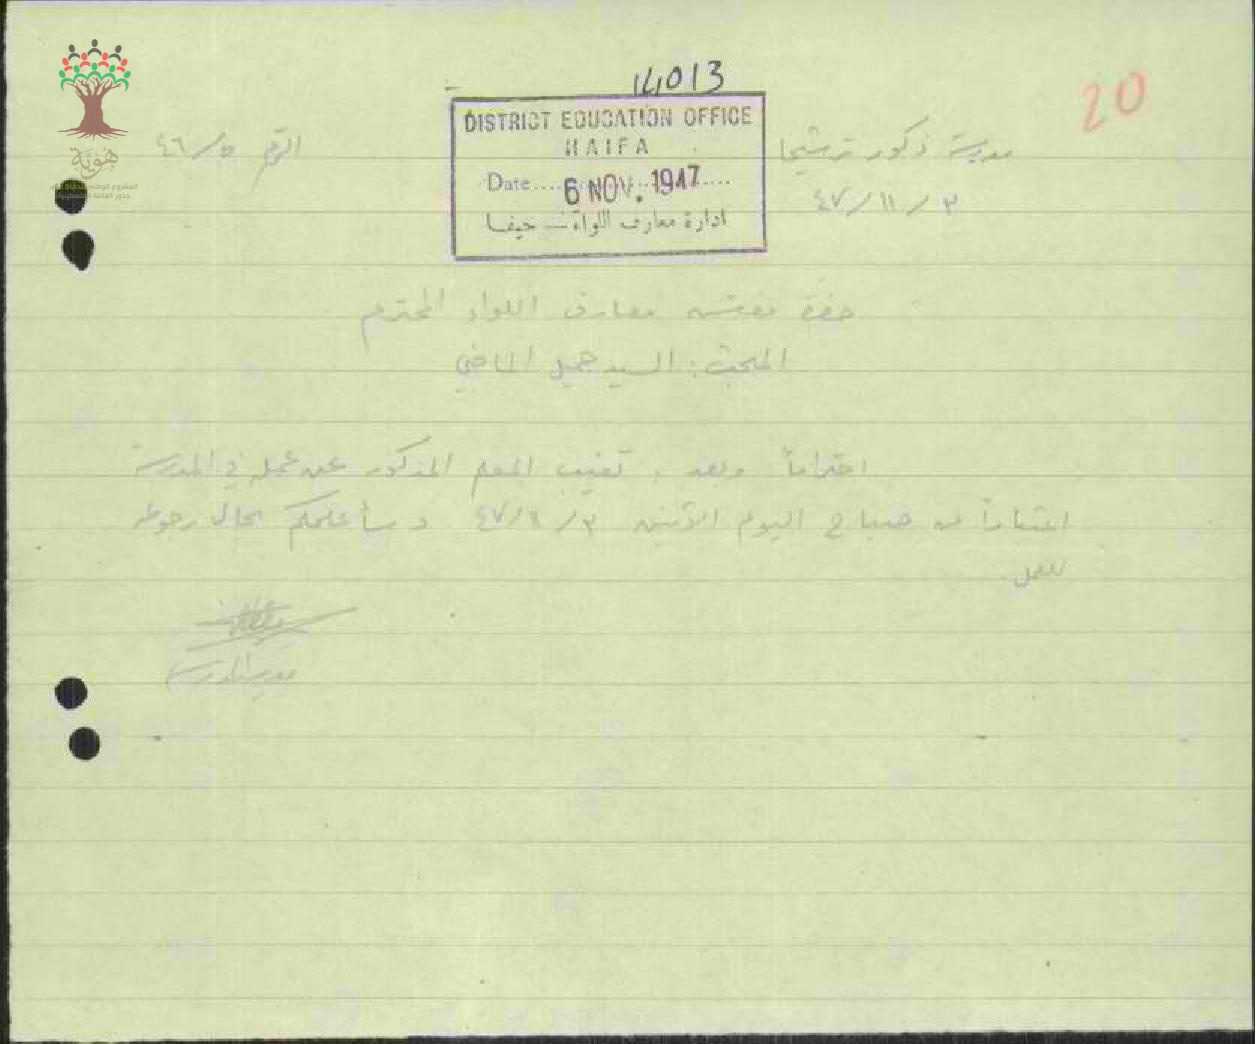 14013
20
DISTRICT EDUCATION OFFICE
HAIFA
Date 6 NOV. 1947
ادارة معارف اللواء - حيفا
مدرسة ذكور ترشيحا
٣ / ١١ / ٤٧
الرقم ٥ / ٤٦
هوية
حضرة مفتش معارف اللواء المحترم
المبحث : السيد جميل الماضي
احتراماً وبعد ، تغيب المعلم المذكور عن عمله في المدرسة
اعتباراً من صباح اليوم الاثنين ٣ / ١١ / ٤٧ و سأعلمكم بحال رجوعه
للعمل
مدير المدرسة